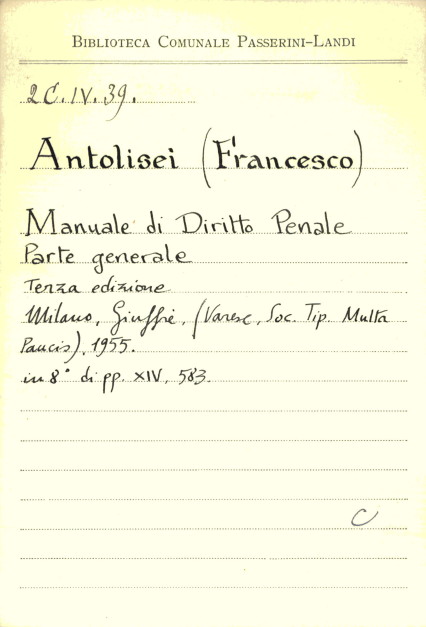 BIBLIOTECA COMUNALE PASSERINI-LANDI
2C.IV.39.
Antolisei (Francesco)
Manuale di Diritto Penale
Parte generale
Terza edizione
Milano, Giuffrè, (Varese, Soc. Tip. Multa
Paucis), 1955.
in 8° di pp. XIV, 583.
C